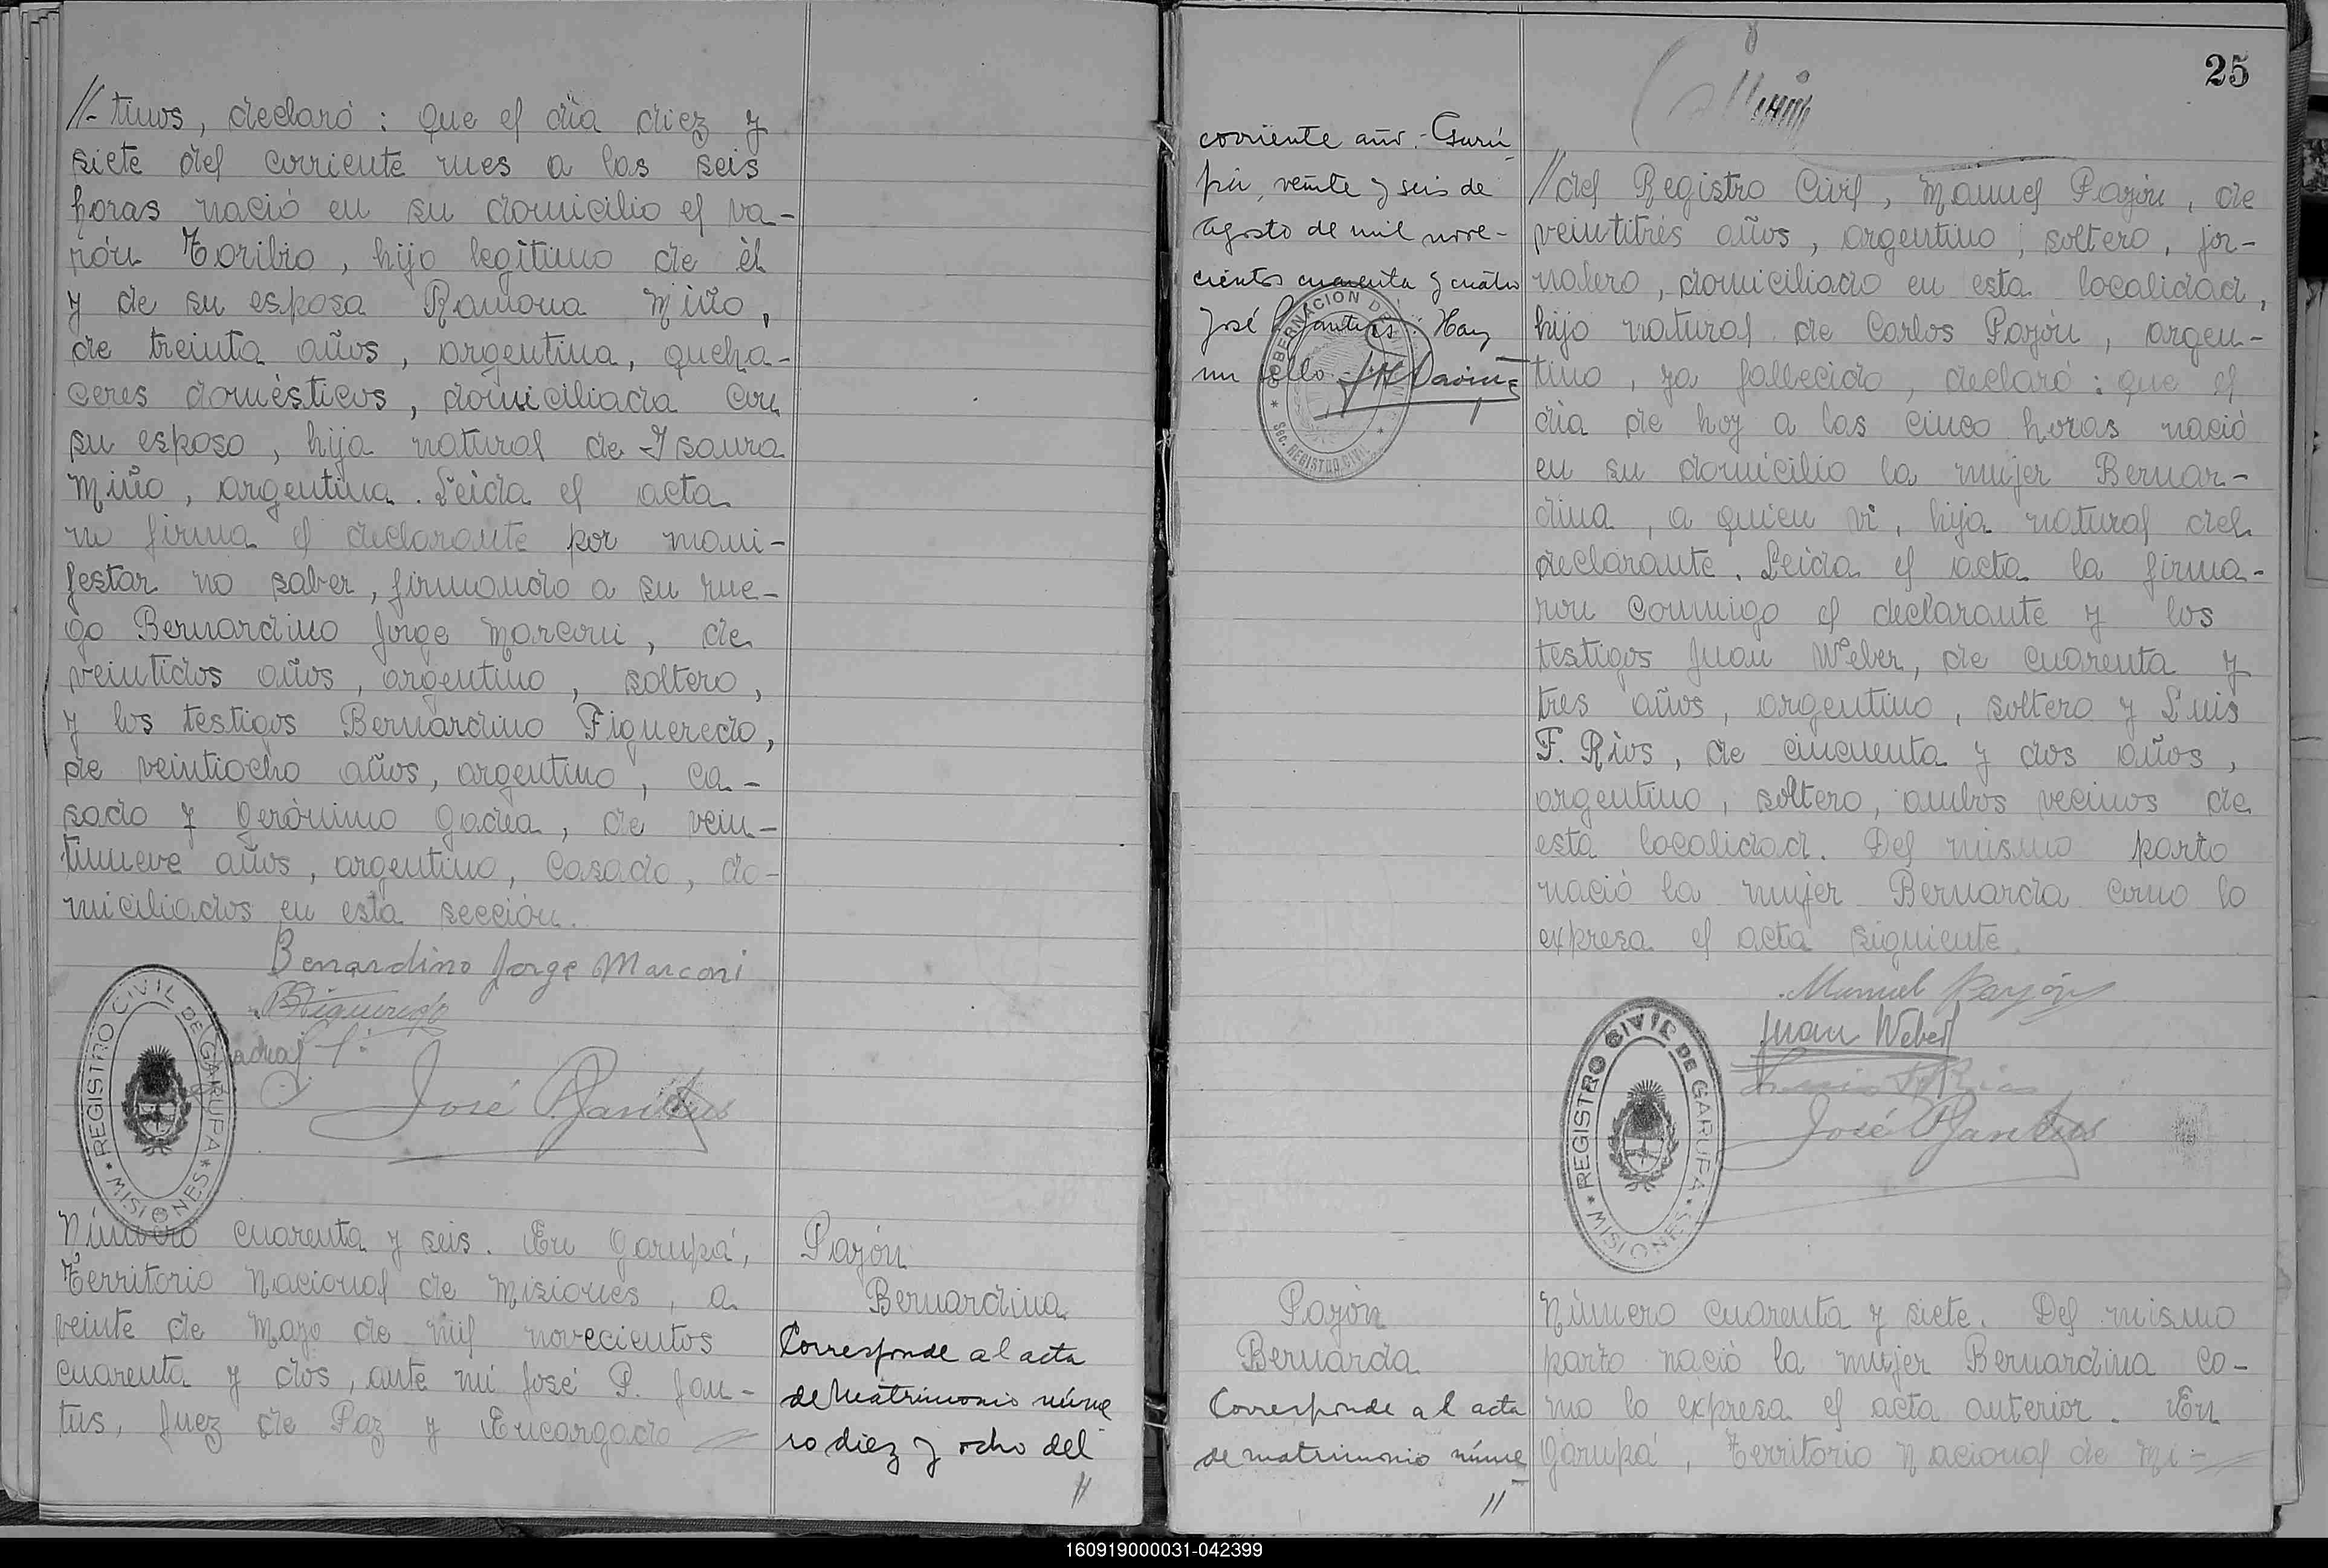 //- tinos, declaró: Que el día diez y
siete del corriente mes a las seis
horas nació en su domicilio el va-
rón Toribio, hijo legítimo de él
y de su esposa Ramona Miño,
de treinta años, argentina, queha-
ceres domésticos, domiciliada con
su esposo, hija natural de Isaura
Miño, argentina. Leída el acta
no firma el declarante por mani-
festar no saber, firmando a su rue-
go Bernardino Jorge Marconi, de
veintidos años, argentino, soltero,
y los testigos Bernardino Figueredo,
de veintiocho años, argentino, ca-
sado y Gerónimo Gadea, de vein-
tinueve años, argentino, casado, do-
miciliados en esta sección.
Benardino Jorge Marconi
BFigueredo
José P Jantus
REGISTRO CIVIL DE GARUPA
* MISIONES *
Número cuarenta y seis. En Garupá,
Territorio Nacional de Misiones, a
veinte de Mayo de mil novecientos
cuarenta y dos, ante mí José P. Jan-
tus, Juez de Paz y Encargado //
Payón
Bernardina
Corresponde al acta
de Matrimonio núme
ro diez y ocho del
//
25
corriente año.- Garu
pá, veinte y seis de
agosto de mil nove-
cientos cuarenta y cuatro
José P Jantus: Hay
un sello
GOBERNACION DE
* SEC. REGISTRO CIVIL *
//del Registro Civil, Manuel Payón, de
veintitrés años, argentino, soltero, jor-
nalero, domiciliado en esta localidad,
hijo natural de Carlos Payón, argen-
tino, ya fallecido, declaró: que el
día de hoy a las cinco horas nació
en su domicilio la mujer Bernar-
dina, a quien vi, hija natural del
declarante. Leída el acta la firma-
ron conmigo el declarante y los
testigos Juan Weber, de cuarenta y
tres años, argentino, soltero y Luis
F. Ríos, de cincuenta y dos años,
argentino, soltero, ambos vecinos de
esta localidad. Del mismo parto
nació la mujer Bernarda como lo
expresa el acta siguiente.
Manuel Payón
Juan Weber
Luis F Rios
José P Jantus
REGISTRO CIVIL DE GARUPA
* MISIONES *
Payón
Bernarda
Corresponde al acta
de matrimonio núme
//
Número cuarenta y siete. Del mismo
parto nació la mujer Bernardina co-
mo lo expresa el acta anterior. En
Garupá, Territorio Nacional de Mi-//
160919000031-042399